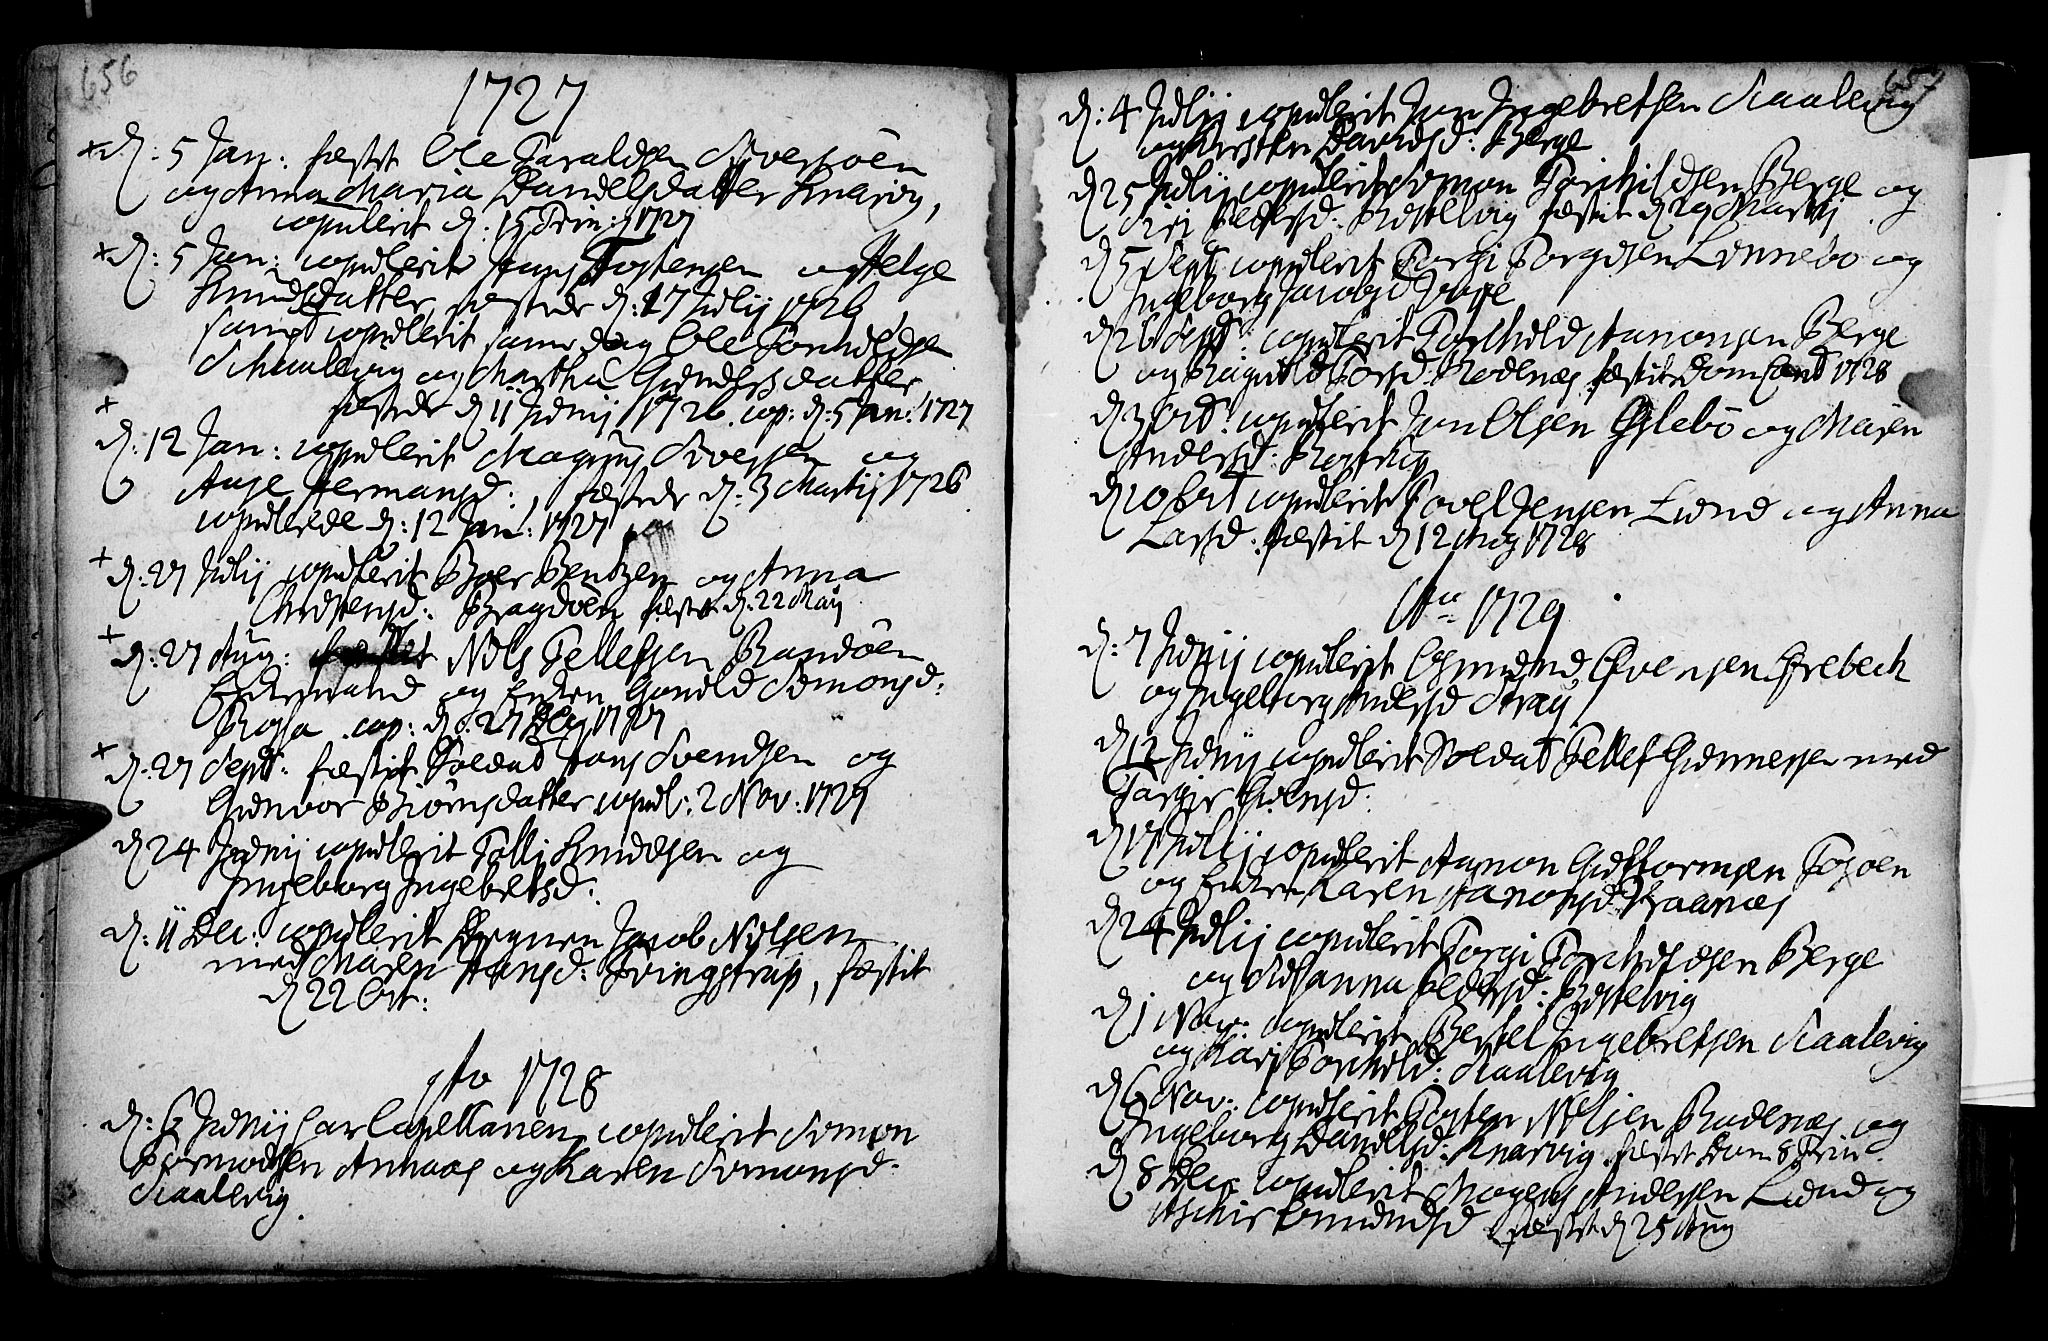 656
1727
+ d: 5 Jan: festet Ole Taraldsen
og Anna Maria Danielsdatter Knarvig,
copulerit d: 15 Trin: 1727
+ d: 5 Jan: copulerit Hans Tostensen og Helge
Knudsdatter, festede d: 17 Julij 1726
samt copulerit samme dag Ole Torkildsen
Schaalevig og Martha Gundersdatter
festede d 11 Junij 1726. cop: d: 5 Jan: 1727
+
d: 12 Jan: copulerit Magnus Svensen og
Aase Hermansd: festede d: 3 Martij 1726
copulerede d: 12 Jan: 1727
+ d: 27 Julij copulerit Boer Bentzen og Anna
Christensd: Bragdøen festet d: 22 Maij
+ d: 27 Aug: Nils Tellefsen Randøen
Enkemand og Enken Gonild Simonsd:
Rossa cop: d: 27 1727
+ d: 27 Sept: festit Soldat Hans Svendsen og
Gunvor Biørnsdatter copul: 2 Nov: 1727
d 24 Junij copulerit Salli Knudsen og
Ingeborg Ingebretsd:
d: 11 Dec: copulerit Jacob Nilsen
med Maren Hansd: Tvingstrup, festit
d 22 Oct:
Ao 1728
d: 6 Junij copulerit Simon
Tormodsen Annaas og Karen Simonsd:
Kaalevig.
657
d: 4 Julij copulerit Jon Ingebretsen Kaalevig
og Kirsten Davidsd: Berge
d 25 Julij copulerit Simon Torkildsen Berge og
Siri Pedersd: festit d 29 Martij
d 5 Sept: copulerit Torgi Torgiusen Linnebo og
Ingeborg Jacobsd
d 26 Sept: copulerit Torkild Aanonsen Berge
og Ragnild Torsd: Rodenæs festit 1728
d 3 Oct: copulerit Jon Olsen Eglebø og Maren
Andersd:
d 10 Oct copulerit Povel Jensen Lund og Anna
Larsd: festit d 12 Aug 1728
Ao 1729
d: 7 Junij copulerit Osmund Evensen Ørebech
og Ingeborg Andersd Straij
d 12 Junij copulerit Soldat Tellef Gunnersen med
Torgir
d 17 Julij copulerit Aanon Guttormsen
og Enken Karen Aanonsd Kraanæs
d 24 Julij copulerit Torgi Torkildsen Berge
og Susanna Pedersd:
d 1 Nov: copulerit Bertel Ingebretsen Kaalevig
og Kari Torkildsd: Kaalevig
d 6 Nov: copulerit Tosten Nilsen Rodenæs og
Ingeborg Danielsd: Knarvig. festet Dom 8 Trin
d 8 Dec: copulerit Mogens Andersen Lund og
festit d 25 Aug